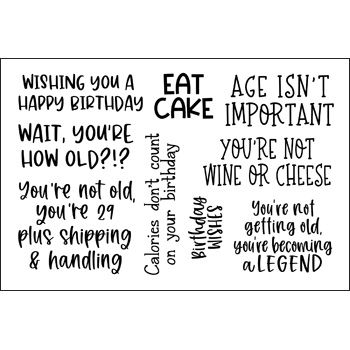 WISHING YOU A
HAPPY BIRTHDAY
WAIT, YOU'RE
HOW OLD?!?
You're not old,
you're 29
plus shipping
& handling
EAT
CAKE
Calories don't count
on your birthday
Birthday
WISHES
AGE ISN'T
IMPORTANT
YOU'RE NOT
WINE OR CHEESE
You're not
getting old,
you're becoming
a LEGEND